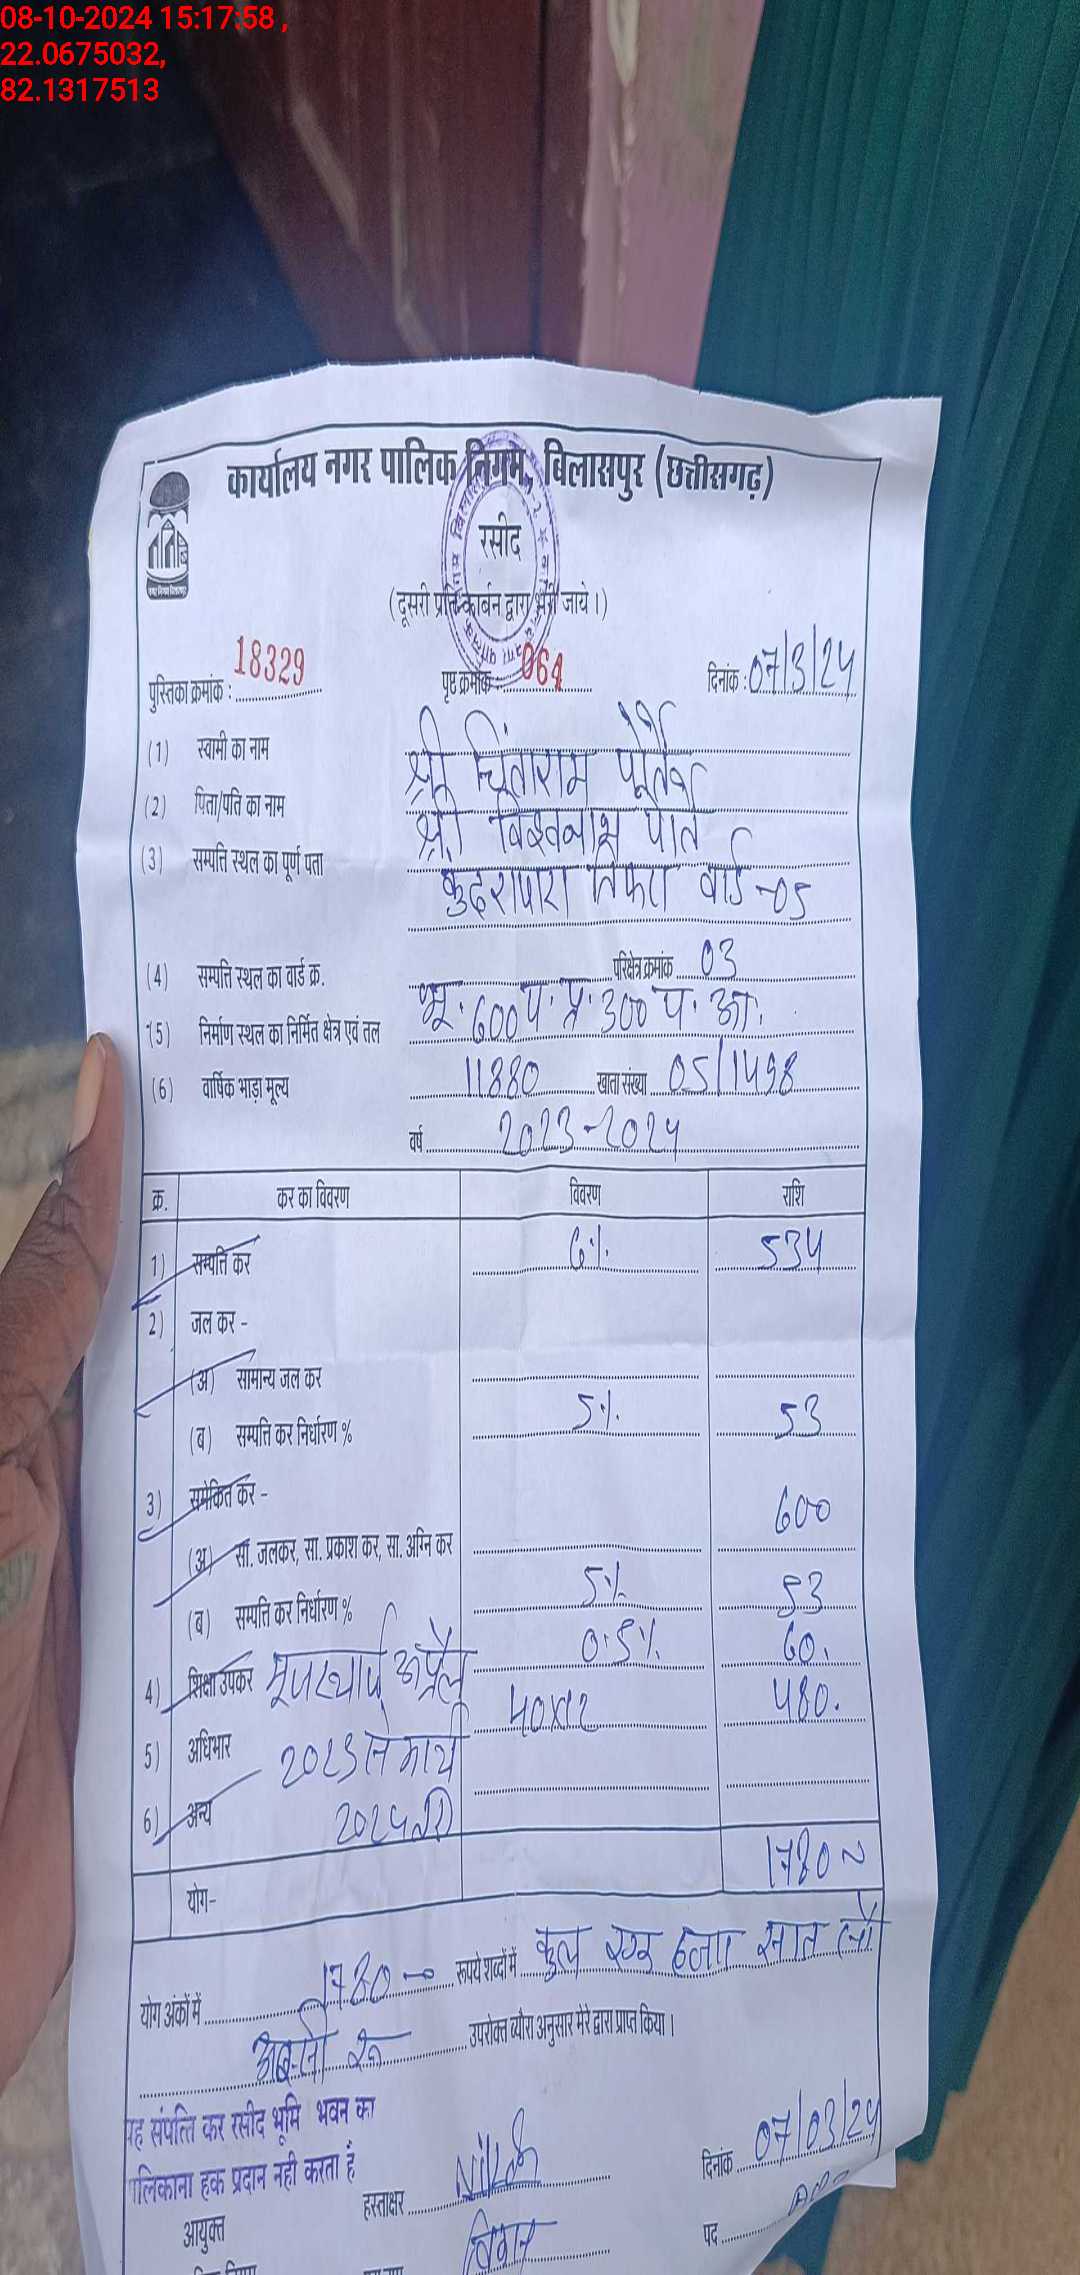 08-10-2024 15:17:58 ,
22.0675032,
82.1317513
कार्यालय नगर पालिक निगम, बिलासपुर (छत्तीसगढ़)
रसीद
(दूसरी प्रति कार्बन द्वारा भरी जाये।)
पुस्तिका क्रमांक : 18329 पृष्ठ क्रमांक : 064 दिनांक : 07/3/24
(1) स्वामी का नाम श्री चिंताराम
(2) पिता/पति का नाम श्री विश्वनाथ
(3) सम्पत्ति स्थल का पूर्ण पता कुदरापारा तिफरा वार्ड -05
(4) सम्पत्ति स्थल का वार्ड क्र. परिक्षेत्र क्रमांक 03
(5) निर्माण स्थल का निर्मित क्षेत्र एवं तल भू. 600 प. प्र. 300 प. आ.
(6) वार्षिक भाड़ा मूल्य 11880 खाता संख्या 05/1498
वर्ष 2023-2024
क्र. कर का विवरण विवरण राशि
1) सम्पत्ति कर 6% 534
2) जल कर -
(अ) सामान्य जल कर
(ब) सम्पत्ति कर निर्धारण % 5% 53
3) समेकित कर - 600
(अ) सा. जलकर, सा. प्रकाश कर, सा. अग्नि कर
(ब) सम्पत्ति कर निर्धारण % 5% 53
4) शिक्षा उपकर अप्रैल 0.5% 60.
5) अधिभार 2023 से मार्च 40x12 480.
6) अन्य 2024
1780
योग-
योग अंकों में 1780 रूपये शब्दों में कुल एक हजार सात सौ
अस्सी रू उपरोक्त ब्यौरा अनुसार मेरे द्वारा प्राप्त किया।
यह संपत्ति कर रसीद भूमि भवन का
मालिकाना हक प्रदान नही करता है
हस्ताक्षर दिनांक 07/03/24
आयुक्त पद